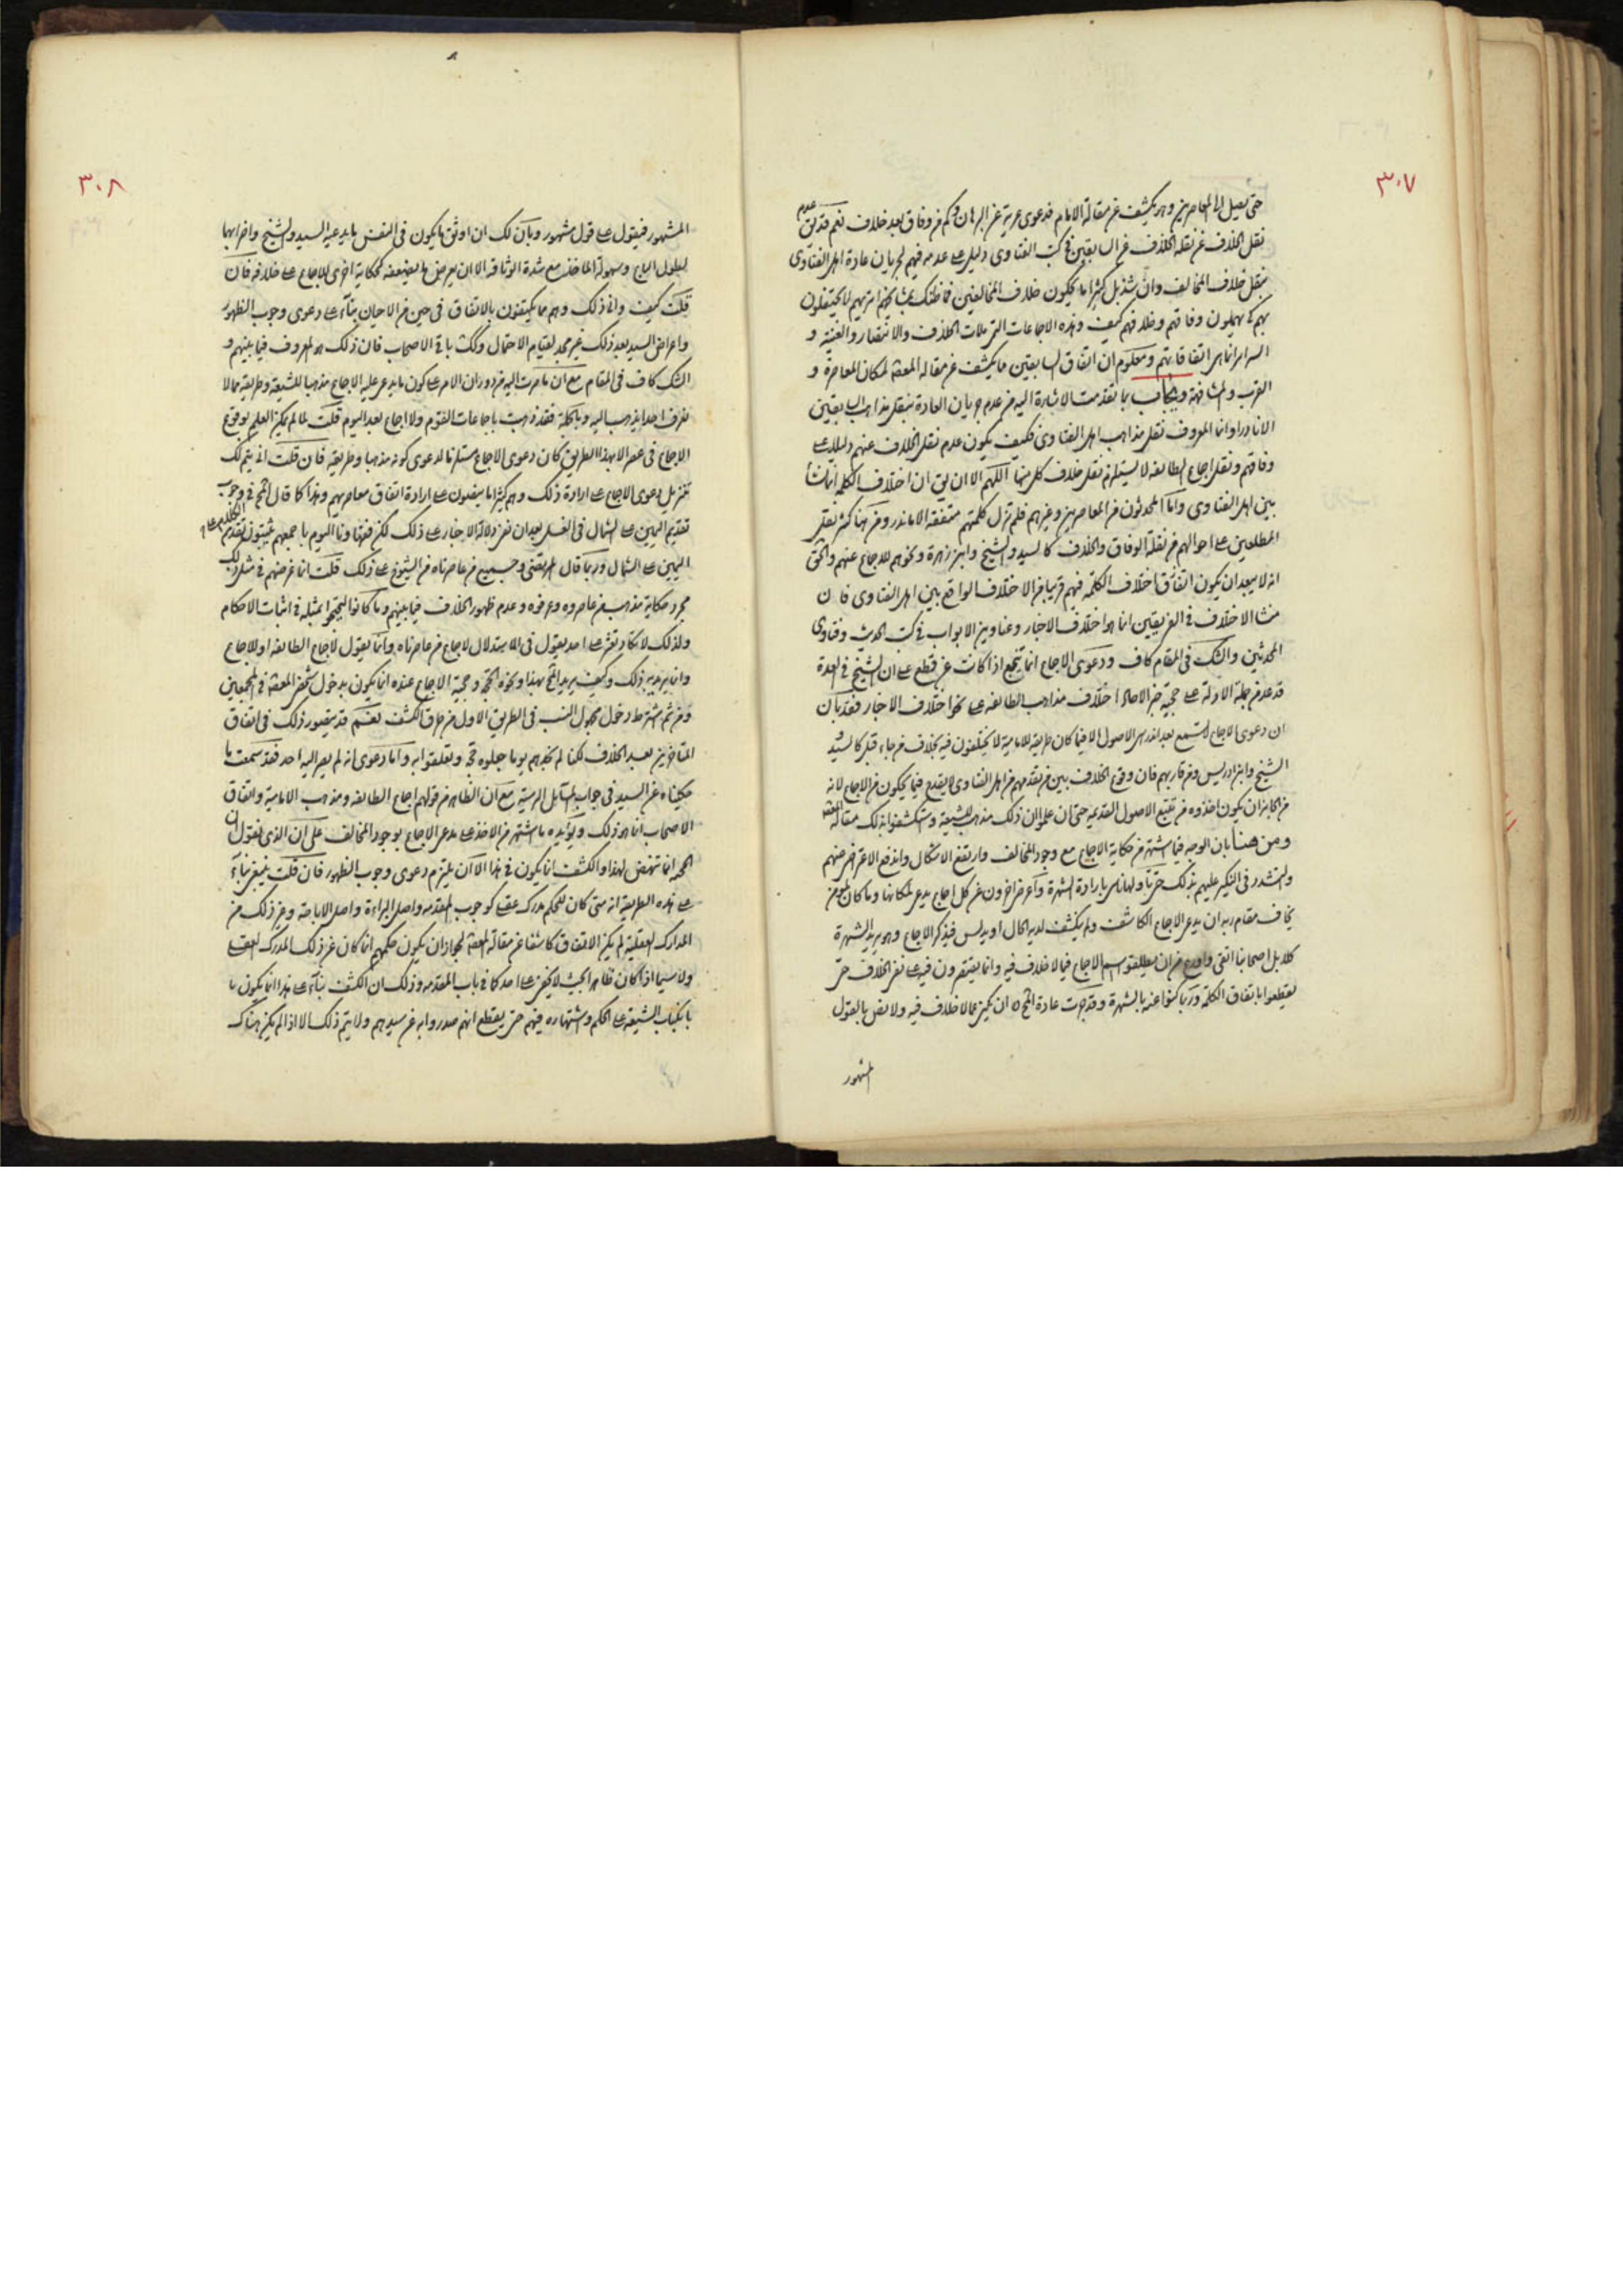 ٣٠٧
حتى يصل الى المعاصرين وهو يكشف عن مقالة الامام فدعوى عرية عن البرهان وكم من وفاق بعد خلاف نعم قد يق عدم
نقل الخلاف عن نقلة الخلاف عن السابقين في كتب الفتاوى دليل على عدمه فيهم لجريان عادة اهل الفتاوى
بنقل خلاف المخالف وان شذ بل كثيرا ما يحكون خلاف المخالفين فما ظنك بمشايخهم اتريهم لا يحتفلون
بهم كلا يهملون وفاقهم وخلافهم كيف وهذه الاجماعات التي ملات الخلاف والانتصار والغنية و
السرائر انما هى اتفاقاتهم ومعلوم ان اتفاق السابقين مما يكشف عن مقالة المعصوم لمكان المعاصرة و
القرب والمشافهة ويجاب بما تقدمت الاشارة اليه من عدم جريان العادة بنقل مذاهب السابقين
الا نادرا وانما المعروف نقل مذاهب اهل الفتاوى فكيف يكون عدم نقل الخلاف عنهم دليلا على
وفاقهم ونقل اجماع الطائفة لا يستلزم نقل خلاف كل منها اللهم الا ان يق ان اختلاف الكلمة انما نشأ
بين اهل الفتاوى واما المحدثون من المعاصرين وغيرهم فلم تزل كلمتهم متفقة الا ما ندر ومن هنا كثر نقل
المطلعين على احوالهم من نقلة الوفاق والخلاف كالسيد والشيخ وابن زهرة ونحوهم للاجماع عنهم والحق
انه لا يبعد ان يكون اتفاق اختلاف الكلمة فيهم قريبا من الاختلاف الواقع بين اهل الفتاوى فان
منشا الاختلاف في الفريقين انما هو اختلاف الاخبار وعناوين الابواب في كتب الحديث وفتاوى
المحدثين والشك في المقام كاف ودعوى الاجماع انما تنجع اذا كانت عن قطع على ان الشيخ في العدة
قد عد من جملة الادلة على حجية خبر الاحاد اختلاف مذاهب الطائفة على نحو اختلاف الاخبار فقد بان
ان دعوى الاجماع لا تسمع بعد اندراس الاصول الا فيما كان طريقة للامامية لا يختلفون فيه بخلاف من جاء قبل كالسيد
الشيخ وابن ادريس ومن قاربهم فان وقوع الخلاف بين من تقدمهم من اهل الفتاوى لا يقدح فيما يحكون من الاجماع لانه
من الجايز ان يكون اخذوه من تتبع الاصول القديمة حتى ان علموا ان ذلك مذهب للشيعة واستكشفوا بذلك مقالة المعصوم
ومن هنا بان الوجه فيما اشتهر من حكاية الاجماع مع وجود المخالف وارتفع الاشكال واندفع الاعتراض عنهم
والتشدد في النكير عليهم بذلك حتى تاولها ناس بارادة الشهرة واعرض اخرون عن كل اجماع يدعى لمكانها وما كان لمؤمن
يخاف مقام ربه ان يدعى الاجماع الكاشف ولم يكشف لديه الحال او يدلس فيذكر الاجماع وهو يريد الشهرة
كلا بل اصحابنا اتقى واورع من ان يطلقوا اسم الاجماع فيما لا خلاف فيه وانما يقتصرون فيه على نفى الخلاف حتى
يقطعوا باتفاق الكلمة وربما كنوا عنه بالشهرة وقد جرت عادة المحقق ان يكنى عما لا خلاف فيه ولا نص بالقول
المشهور
٣٠٨
المشهور فيقول على قول مشهور وبان لك ان اوثق ما يكون في النفس ما يدعيه السيد والشيخ واضرابهما
لطول الباع وسهولة الماخذ مع شدة الوثاقة الا ان يعرض لها بعض ضعف كحكاية اخرى للاجماع على خلافه فان
قلت كيف وانى ذلك وهم مما يكتفون بالاتفاق في حين من الاحيان بناء على دعوى وجوب الظهور
واعراض السيد بعد ذلك غير مجد لقيام الاحتمال وكك باقى الاصحاب فان ذلك هو المعروف فيما بينهم و
الشك كاف في المقام مع ان ما صرت اليه من دوران الامر على كون ما يدعى عليه الاجماع مذهبا للشيعة وطريقة مما لا
نعرف احدا يذهب اليه وبالجملة فقد ذهبت باجماعات القوم ولا اجماع بعد اليوم قلت لما لم يكن العلم بوقوع
الاجماع في عصر الا بهذا الطريق كان دعوى الاجماع مستلزما لدعوى كونه مذهبا وطريقة فان قلت انى يتم لك
تنزيل دعوى الاجماع على ارادة ذلك وهم كثيرا ما ينصون على ارادة اتفاق معاصريهم وهذا كما قال المحقق في وجوب
تقديم اليمين على الشمال في الغسل بعد ان نفى دلالة الاخبار على ذلك لكن فقهاؤنا اليوم باجمعهم يفتون بتقديم
اليمين على الشمال وربما قال المرتضى وجميع من عاصرناه من الشيوخ على ذلك قلت انما غرضهم في مثل ذلك
مجرد حكاية مذهب من عاصروه وعرفوه وعدم ظهور الخلاف فيما بينهم وما كانوا ليحتجوا بمثله في اثبات الاحكام
ولذلك لا تكاد تعثر على احد يقول في الاستدلال لاجماع من عاصرناه وانما يقول لاجماع الطائفة او للاجماع
وانما يريد به ذلك وكيف يريد المحقق بهذا ونحوه الحجة وحجية الاجماع عنده انما يكون بدخول شخص المعصوم في المجمعين
ومن ثم اشترط دخول مجهول النسب في الطريق الاول من طرق الكشف نعم قد يتصور ذلك في اتفاق
المتاخرين بعد الخلاف لكنا لم نجدهم يوما جعلوه حجة وتعلقوا به واما دعوى انه لم يصر اليه احد فقد سمعت ما
حكيناه عن السيد في جواب المسائل الرسية مع ان الظاهر من قولهم اجماع الطائفة ومذهب الامامية واتفاق
الاصحاب انما هو ذلك ويؤيده ما اشتهر من الاخذ على مدعى الاجماع بوجود المخالف على ان الذي نقول ان
الحجة انما تنهض لهذا والكشف انما يكون في هذا الا ان يلتزم دعوى وجوب الظهور فان قلت ينبغى بناء
على هذه الطريقة انه متى كان للحكم مدرك عقلى كوجوب المقدمة واصل البراءة واصل الاباحة وغير ذلك من
المدارك العقلية لم يكن الاتفاق كاشفا عن مقالة المعصوم لجواز ان يكون حكمهم انما كان عن ذلك المدرك العقلى
ولا سيما اذا كان ظاهرا بحيث لا يخفى على احد كما في باب المقدمة وذلك ان الكشف بناء على هذا انما يكون با
بانكباب الشيعة على الحكم واشتهاره فيهم حتى يقطع انهم صدروا به عن سيدهم ولا يتم ذلك الا اذا لم يكن هناك